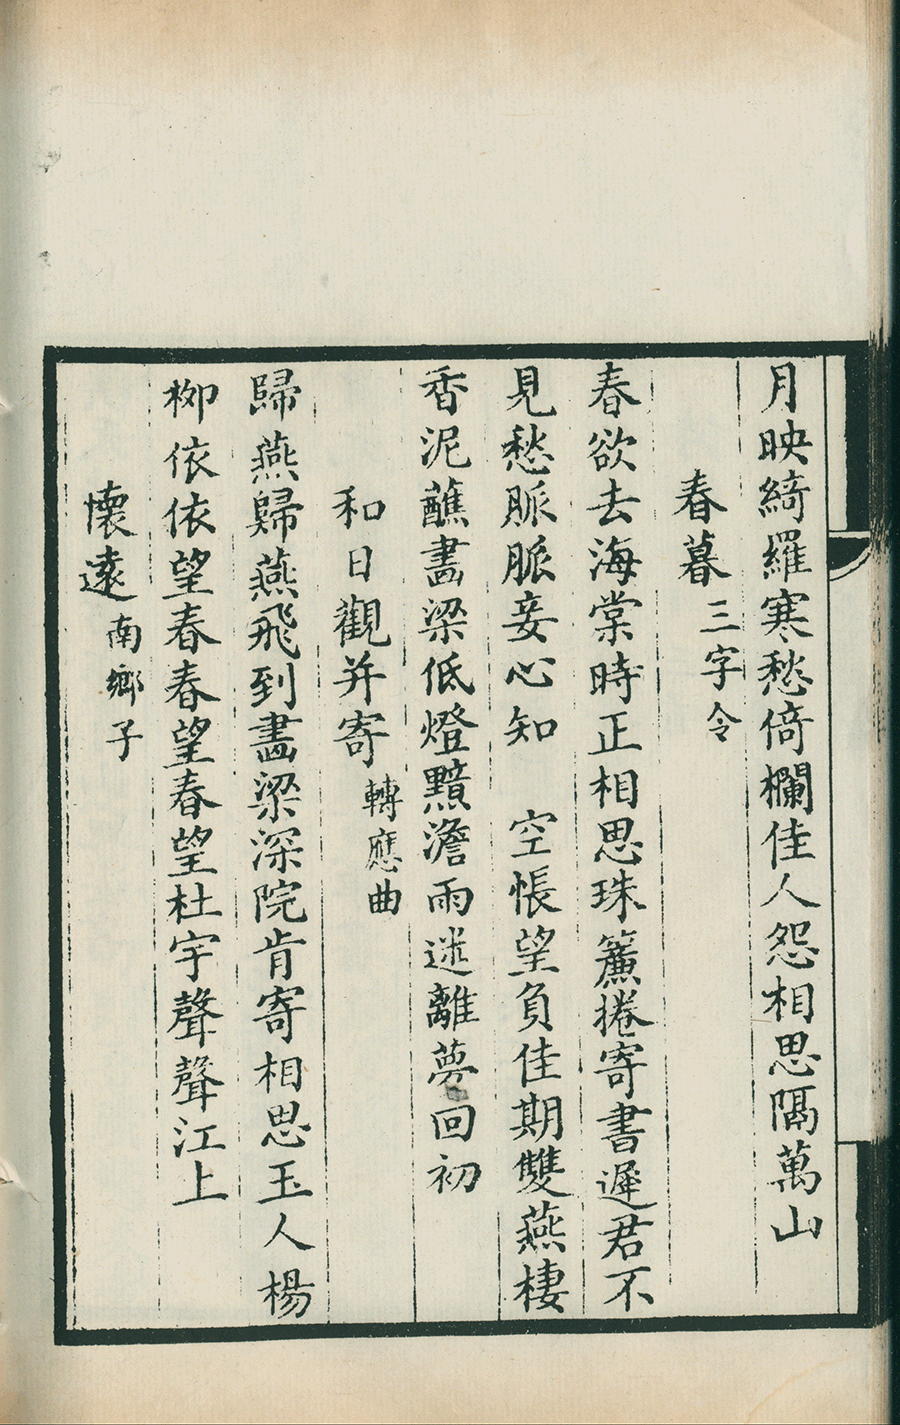 月映綺羅寒愁倚欄佳人怨相思隔萬山
春暮 三字令
春欲去海棠時正相思珠簾捲寄書遲君不
見愁脈脈妾心知　空悵望負佳期雙燕棲
香泥蘸畵梁低燈黯澹雨迷離夢回初
和日觀并寄 轉應曲
歸燕歸燕飛到畵梁深院肯寄相思玉人楊
栁依依望春春望春望杜宇聲聲江上
懷遠 南鄉子